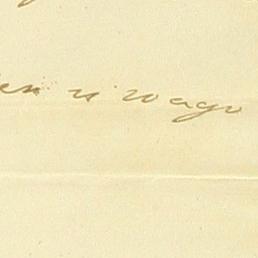 en is wago